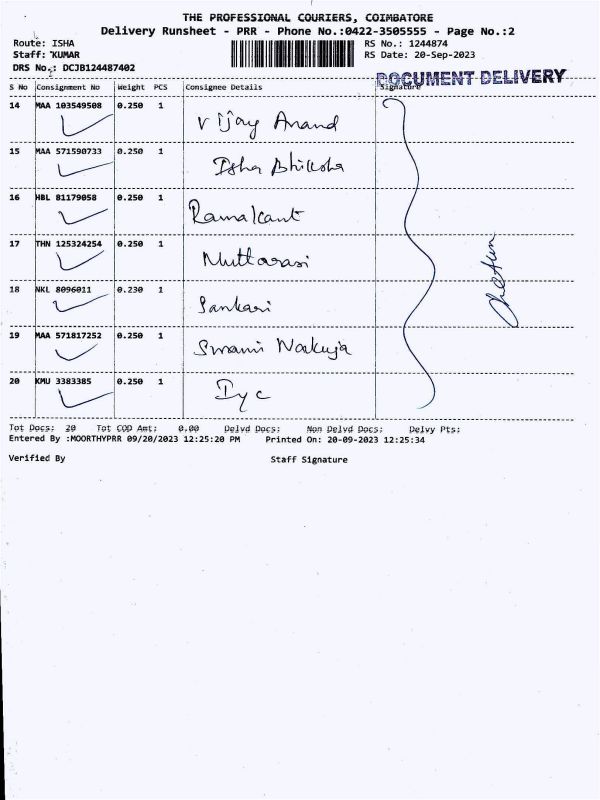 THE PROFESSIONAL COURIERS, COIMBATORE
Delivery Runsheet - PRR - Phone No.:0422-3505555 - Page No.:2
Route: ISHA RS No.: 1244874
Staff: KUMAR RS Date: 20-Sep-2023
DRS No.: DCJB124487402
DOCUMENT DELIVERY
S No Consignment No Weight PCS Consignee Details Signature
14 MAA 103549508 0.250 1 Vijay Anand
15 MAA 571590733 0.250 1 Isha Bhiksha
16 HBL 81179058 0.250 1 Ramakant
17 THN 125324254 0.250 1 Muttarasi
18 NKL 8096011 0.230 1 Sankari
19 MAA 571817252 0.250 1 Swami
20 KMU 3383385 0.250 1 Iyc
Tot Docs: 20 Tot COD Amt: 0.00 Delvd Docs: Non Delvd Docs: Delvy Pts:
Entered By :MOORTHYPRR 09/20/2023 12:25:20 PM Printed On: 20-09-2023 12:25:34
Verified By Staff Signature